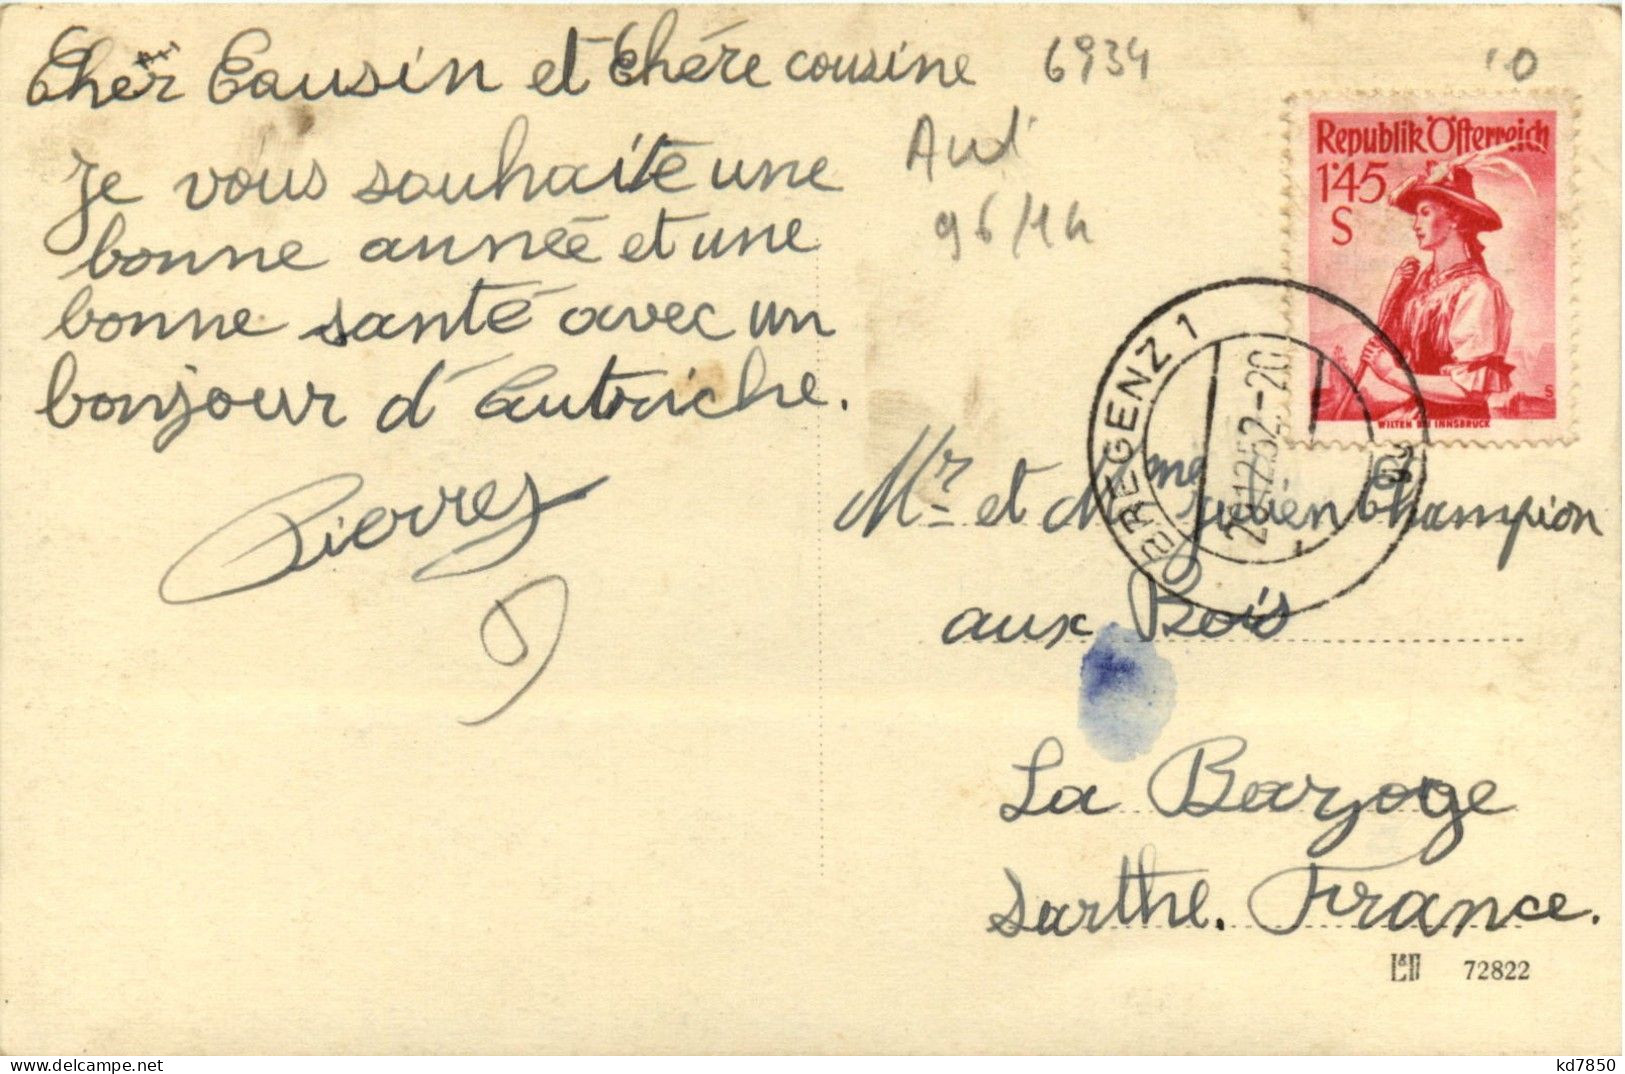 Cher Cousin et Chére cousine
Je vous souhaite une
bonne année et une
bonne santé avec un
bonjour d'Autriche.
Pierres
6934
96/14
Republik Österreich
1'45
S
WILTEN BEI INNSBRUCK
BREGENZ 1
28.12.52-20
Mr et Mme Julien Champion
aux Bois
La Bazoge
Sarthe. France.
72822
www.delcampe.net
kd7850